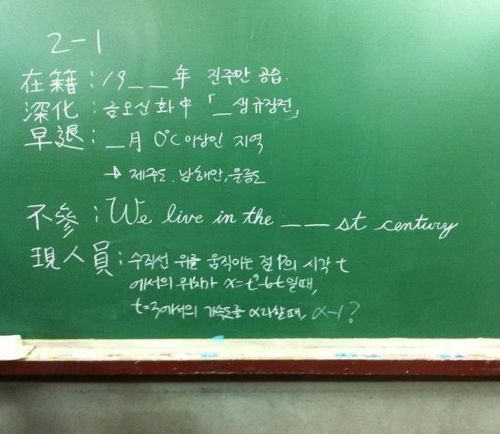 2-1
在籍 : 19__年 진주만 공습.
深化 : 금오신화中「_생규장전」
早退 : _月 0℃이상인 지역
→ 제주도. 남해안, 울릉도
不參 : We live in the __ st century
現人員 : 수직선 위를 움직이는 점 P의 시각 t
에서의 위치가 x=t³-6t 일때,
t=3에서의 가속도를 α라할때, α-1?